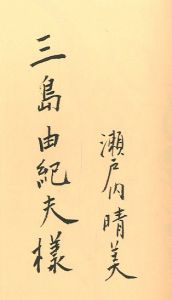 三島由紀夫様
瀬戸内晴美